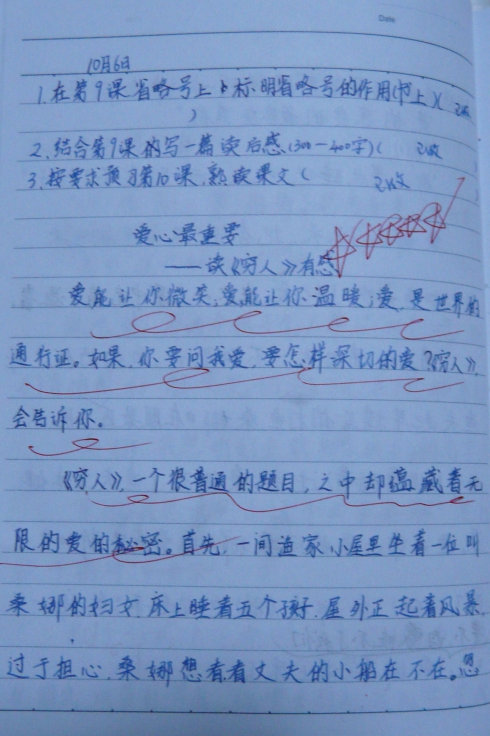 Date
10月6日
1.在第9课省略号上标明省略号的作用(书上)(
)
2、结合第9课的写一篇读后感(300—400字)(
3、按要求预习第10课,熟读课文(
爱心最重要
——读《穷人》有感
爱能让你微笑,爱能让你温暖;爱,是世界的
通行证。如果,你要问我爱,要怎样深切的爱?《穷人》,
会告诉你。
《穷人》,一个很普通的题目,之中却蕴藏着无
限的爱的秘密。首先,一间渔家小屋里坐着一位叫
桑娜的妇女,床上睡着五个孩子,屋外正起着风暴,
过于担心,桑娜想看看丈夫的小船在不在。